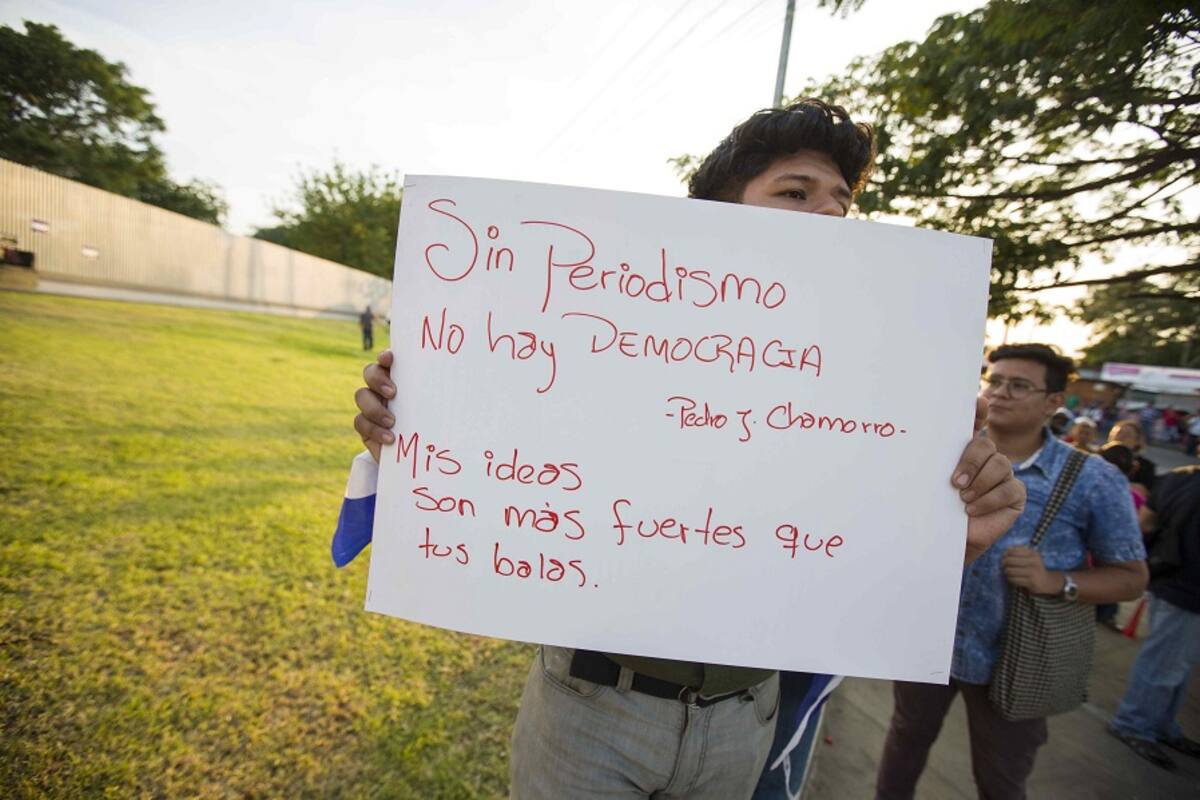 Sin Periodismo
No hay DEMOCRACIA
-Pedro J. Chamorro-
Mis ideas
son más fuertes que
tus balas.